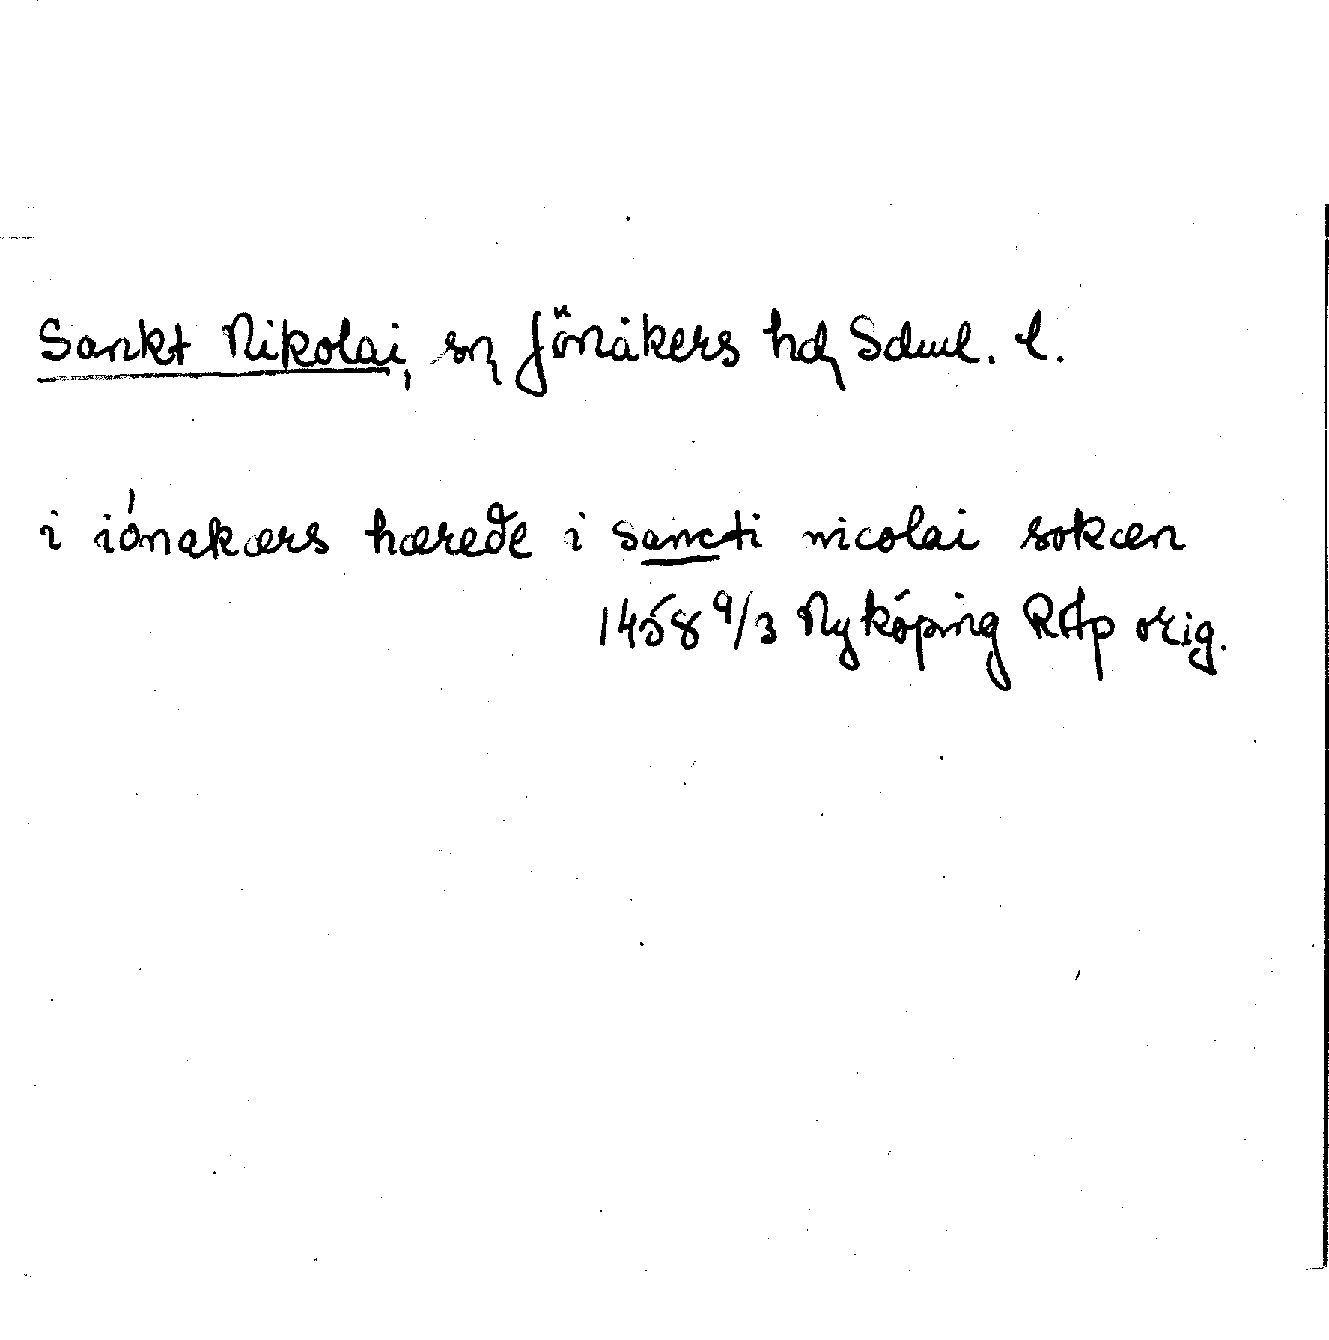 Sankt Nikolai, sn Jönåkers hd Sdml. l.
i iónakærs hæreðe i sancti nicolai sokæn
1458 9/3 Nyköping RAp orig.